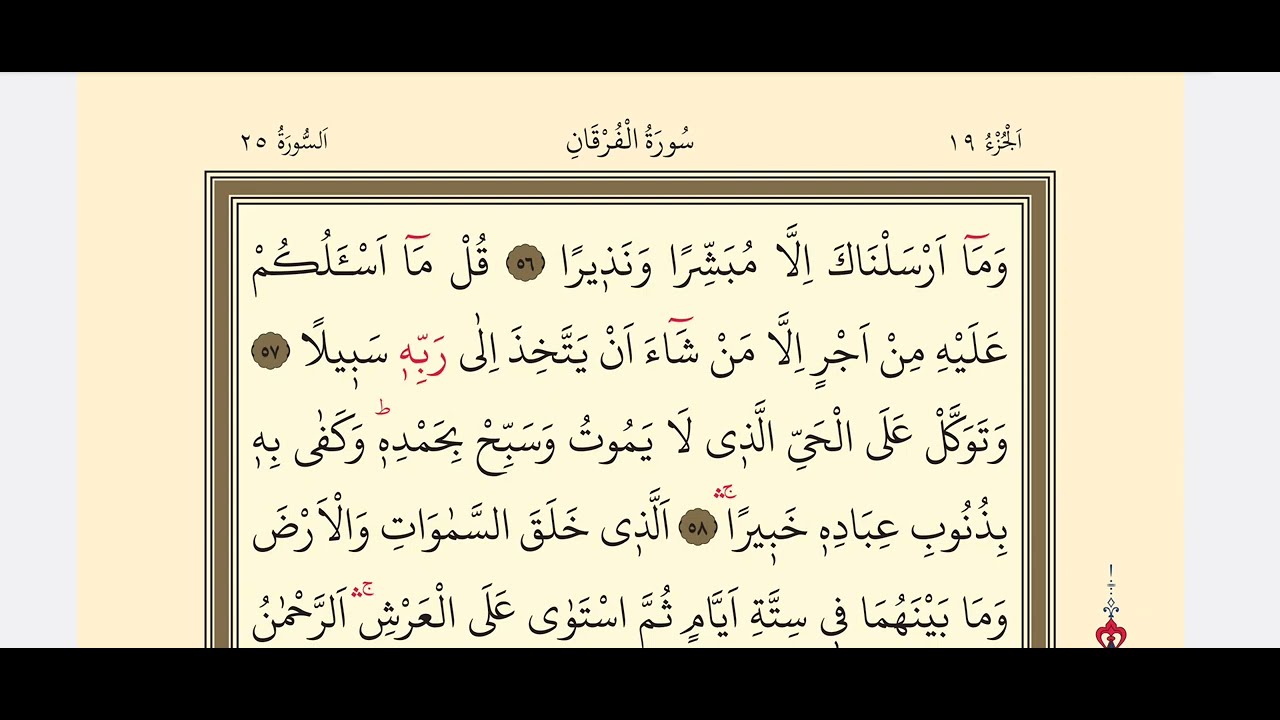 اَلْجُزْءُ ١٩ سُورَةُ الْفُرْقَانِ اَلسُّورَةُ ٢٥
وَمَٓا اَرْسَلْنَاكَ اِلَّا مُبَشِّرًا وَنَذ۪يرًا ٥٦ قُلْ مَٓا اَسْـَٔلُكُمْ
عَلَيْهِ مِنْ اَجْرٍ اِلَّا مَنْ شَٓاءَ اَنْ يَتَّخِذَ اِلٰى رَبِّه۪ سَب۪يلًا ٥٧
وَتَوَكَّلْ عَلَى الْحَيِّ الَّذ۪ى لَا يَمُوتُ وَسَبِّحْ بِحَمْدِه۪ۜ وَكَفٰى بِه۪
بِذُنُوبِ عِبَادِه۪ خَب۪يرًاۚۛ ٥٨ اَلَّذ۪ى خَلَقَ السَّمٰوَاتِ وَالْاَرْضَ
وَمَا بَيْنَهُمَا ف۪ى سِتَّةِ اَيَّامٍ ثُمَّ اسْتَوٰى عَلَى الْعَرْشِۚۛ اَلرَّحْمٰنُ